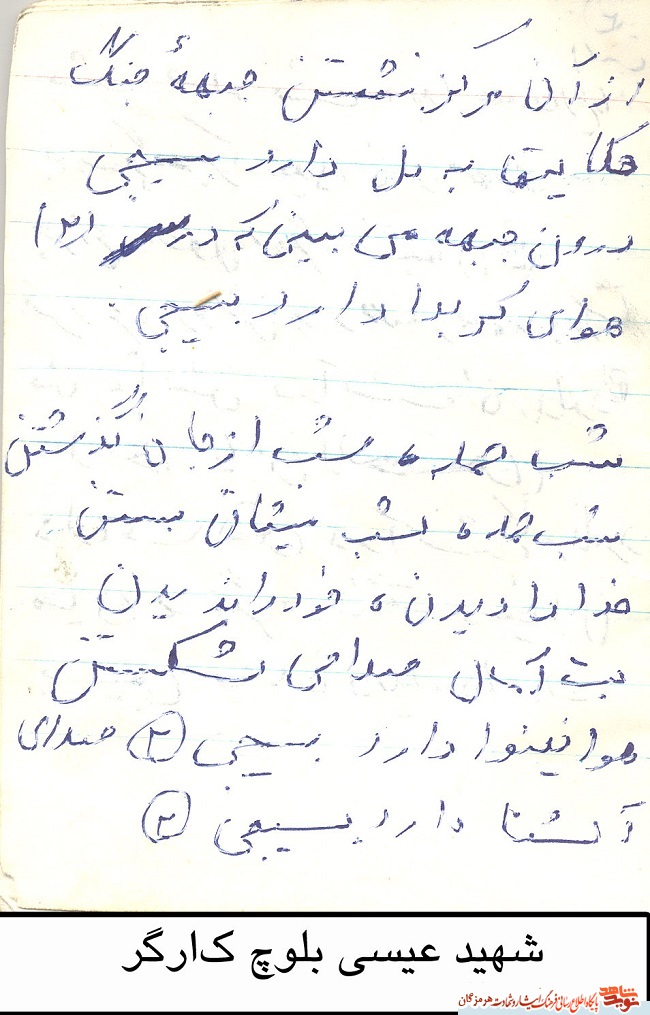 از آن مرکز نشستن جبههٔ جنگ
حکایتها به دل دارد بسیجی
درون جبهه می بینی که در (۲)
هوای کربلا دارد بسیجی
شب حمله شب از جان گذشتن
شب حمله شب میثاق بستن
خدا را دیدن و خود را ندیدن
بت آمال می شکستن
هوا نینوا دارد بسیجی (۲) صدای
آشنا دارد بسیجی (۲)
شهید عیسی بلوچ کارگر
نوید شاهد پایگاه اطلاع رسانی فرهنگ ایثار و شهادت هرمزگان